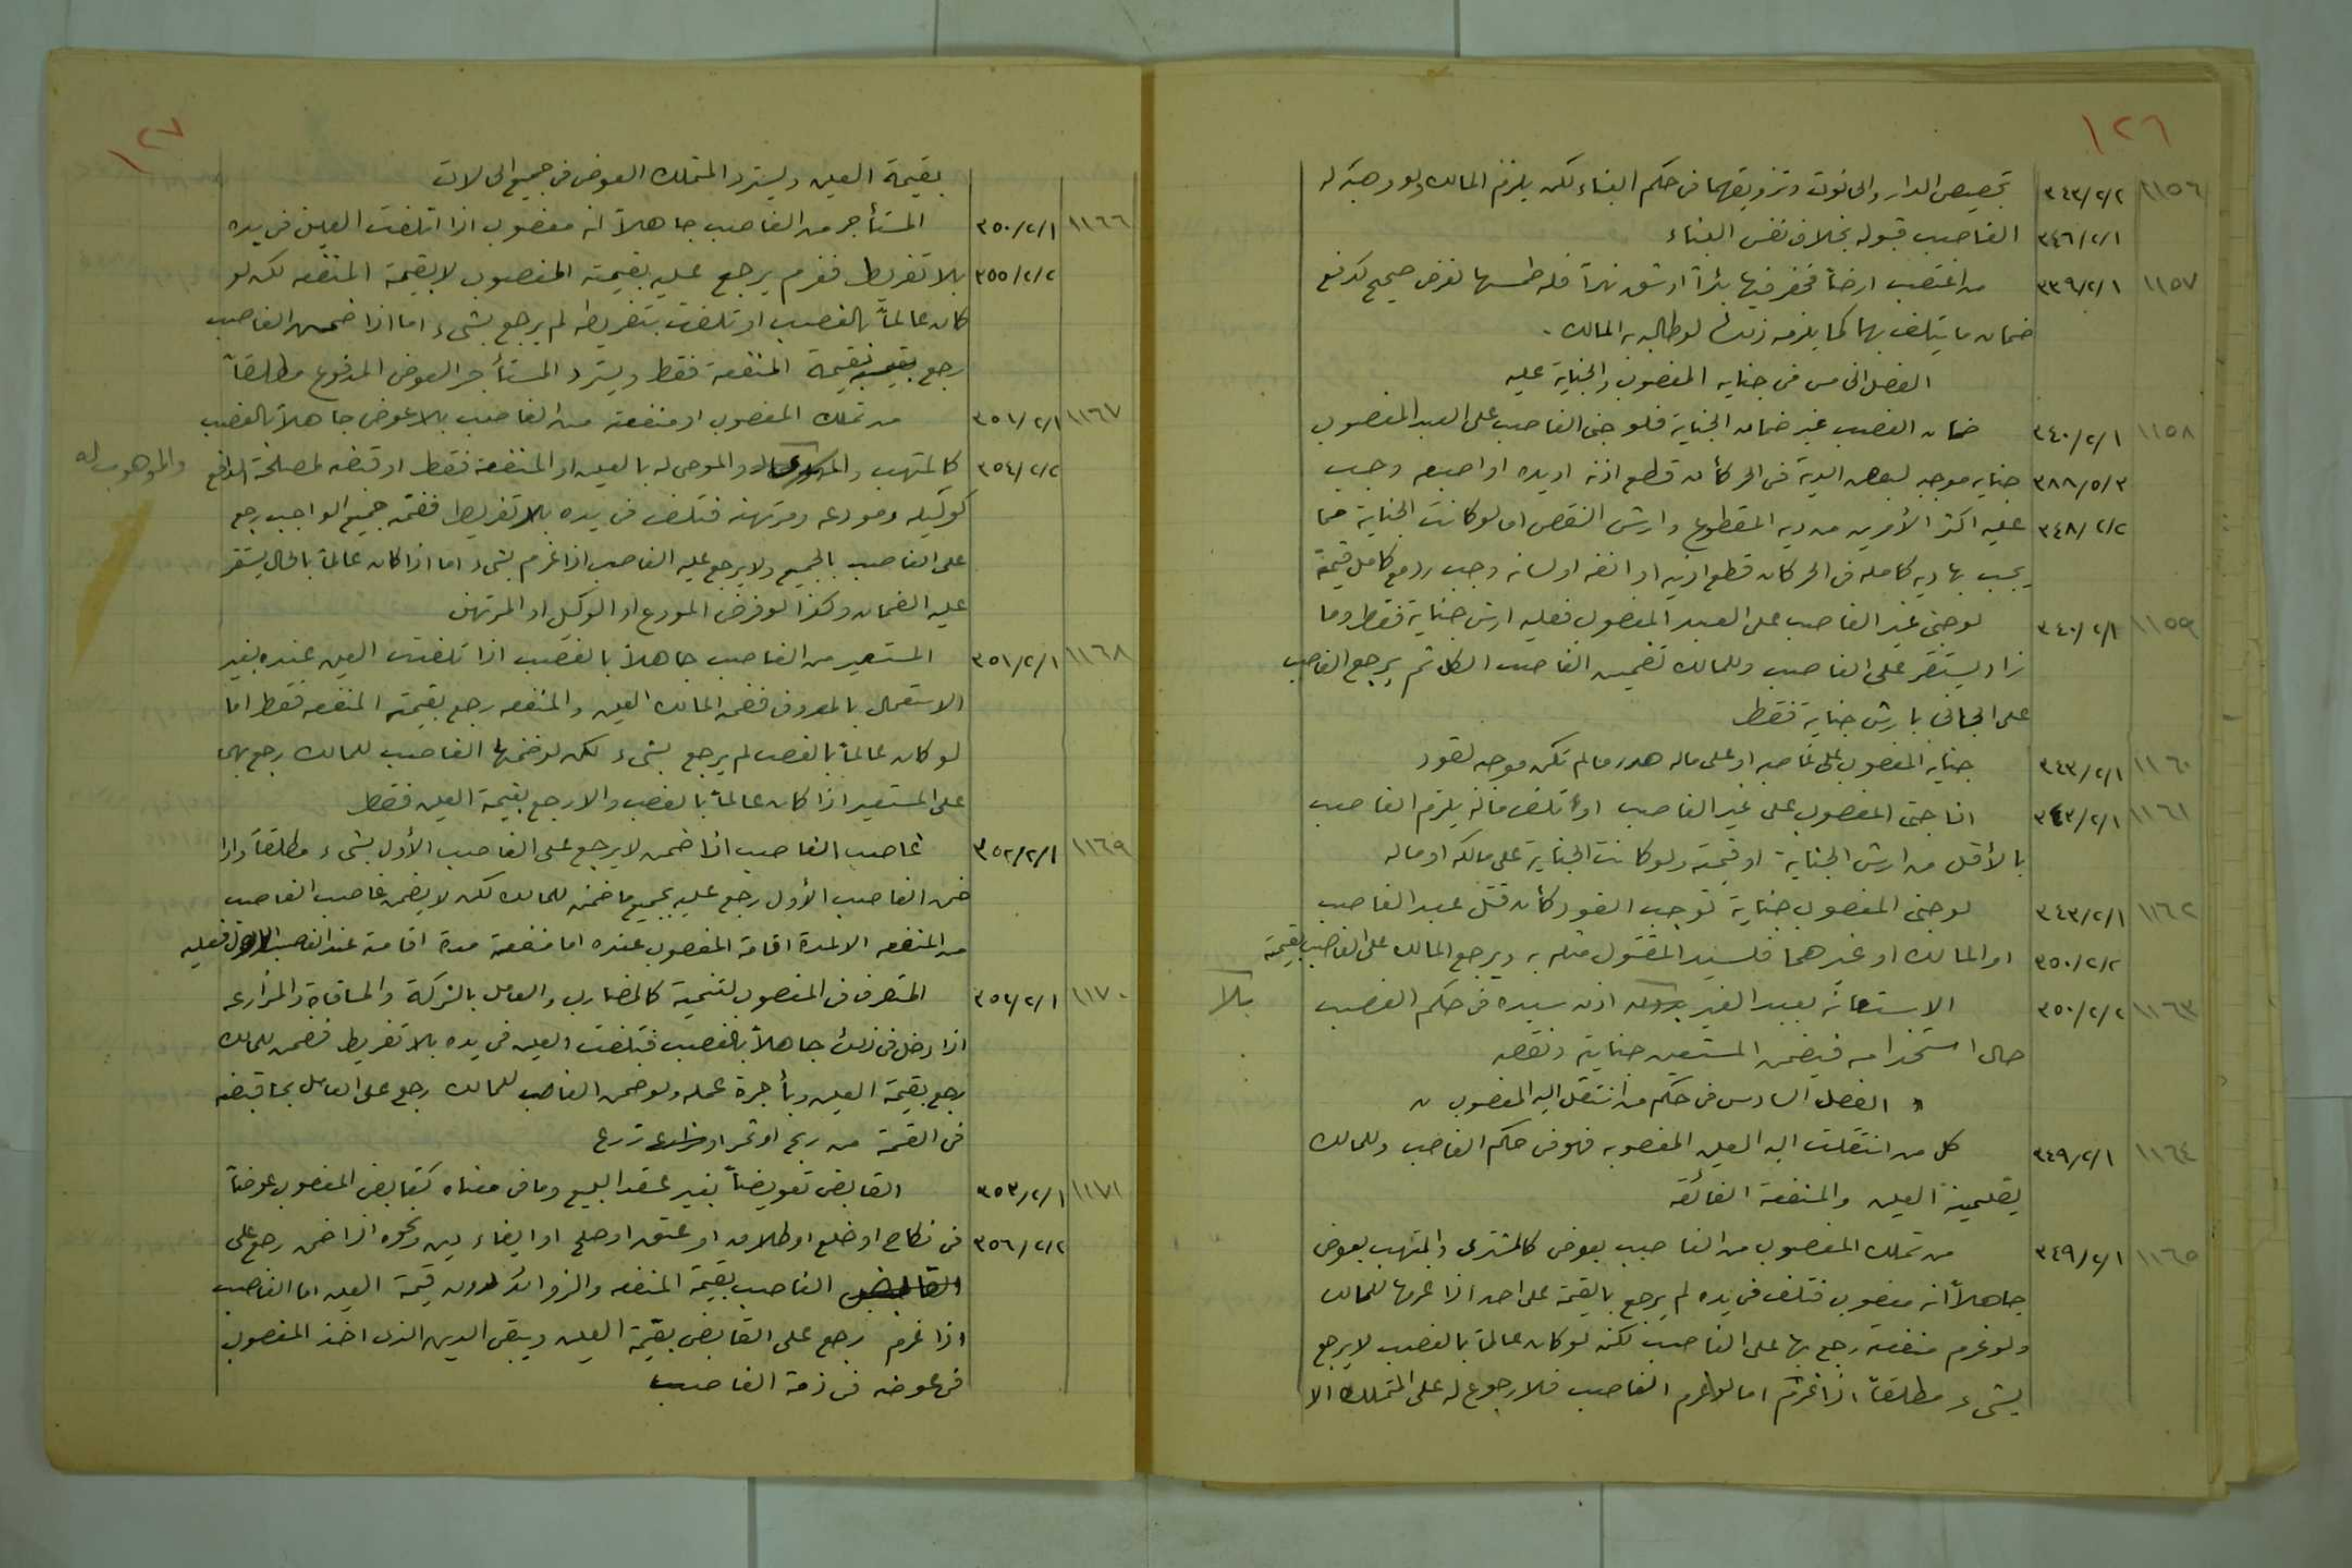 ١٢٦
١١٥٦ ٣٤٣/٢/٢ تجصيص الدار والحانوت وتزويقهما في حكم البناء لكن يلزم المالك ولو وهبه له
٣٤٦/٢/١ الغاصب قبوله بخلاف نفس البناء
١١٥٧ ٣٣٩/٢/١ من اغتصب ارضاً فحفر فيها بئراً او شق نهراً فله طمسها لغرض صحيح كدفع
ضمان ما يتلف بها كما يلزمه ذلك لو طالبه به المالك .
الفصل الخامس في جناية المغصوب والجناية عليه
١١٥٨ ٣٤٠/٢/١ ضمان الغصب غير ضمان الجناية فلو جنى الغاصب على العبد المغصوب
٣٨٨/٥/٣ جناية موجبه لبعض الدية في الحر كأن قطع اذنه او يده او اصبعه وجب
٣٤٨/٢/٢ عليه اكثر الأمرين من دية المقطوع وارش النقص اما لو كانت الجناية مما
يجب بها دية كامله في الحر كان قطع اذنيه او انفه او لسانه وجب رد مع كامل قيمة
١١٥٩ ٣٤٠/٢/١ لو جنى غير الغاصب على العبد المغصوب فعليه ارش جناية فقط وما
زاد يستقر على الغاصب وللمالك تضمين الغاصب الكل ثم يرجع الغاصب
على الجاني بارش جناية فقط
١١٦٠ ٣٤٣/٢/١ جناية المغصوب على غاصبه او على ماله هدر ما لم تكن موجبه لقود
١١٦١ ٣٤٣/٢/١ اذا جنى المغصوب على غير الغاصب او اتلف فانه يلزم الغاصب
بالأقل من ارش الجناية او قيمته ولو كانت الجناية على مالكه او ماله
١١٦٢ ٣٤٣/٢/١ لو جنى المغصوب جناية توجب القود كأن قتل عبد الغاصب
٣٥٠/٢/٢ او المالك او غيرهما فلسيد المقتول قتله به ويرجع المالك على الغاصب بقيمة
١١٦٣ ٣٥٠/٢/٢ الاستعانة بعبد الغير بدون اذن سيده في حكم الغصب
بلا
حال استخدامه فيضمن المستعين جناية ونقصه
" الفصل السادس في حكم من انتقل اليه المغصوب "
١١٦٤ ٣٤٩/٢/١ كل من انتقلت اليه العين المغصوبه فهو في حكم الغاصب وللمالك
تضمينه العين والمنفعة الفائته
١١٦٥ ٣٤٩/٢/١ من تملك المغصوب من الغاصب بعوض كالمشتري والمتهب بعوض
جاهلاً انه مغصوب فتلف في يده لم يرجع بالقيمة على احد اذا غرمها للمالك
ولو غرم منفعته رجع بها على الغاصب لكنه لو كان عالماً بالغصب لا يرجع
بشيء مطلقاً اذا غرم اما لو غرم الغاصب فلا رجوع له على المتملك الا
١٢٧
بقيمة العين ويسترد المتملك العوض في جميع الحالات
١١٦٦ ٣٥٠/٢/١ المستأجر من الغاصب جاهلاً انه مغصوب اذا تلفت العين في يده
٣٥٥/٢/٢ بلا تفريط فغرم يرجع عليه بقيمته المغصوب لا بقيمة المنفعه لكنه لو
كان عالماً بالغصب او تلفت بتفريطه لم يرجع بشيء اما اذا ضمن الغاصب
رجع بقيمة المنفعة فقط ويسترد المستأجر العوض المدفوع مطلقاً
١١٦٧ ٣٥١/٢/١ من تملك المغصوب او منفعته من الغاصب بلا عوض جاهلاً بالغصب
٣٥٤/٢/٢ كالمتهب والموصى له بالعين او المنفعة فقط او قبضه لمصلحة الدافع
والموهوب له
كوكيله ومودعه ومرتهنه فتلف في يده بلا تفريط فضمنه جميع الواجب رجع
على الغاصب بالجميع ولا يرجع عليه الغاصب اذا غرم بشيء اما اذا كان عالماً بالحال يستقر
عليه الضمان وكذا لو فرض المودع او الوكيل او المرتهن
١١٦٨ ٣٥١/٢/١ المستعير من الغاصب جاهلاً بالغصب اذا تلفت العين عنده بغير
الاستعمال بالمعروف فضمنه المالك العين والمنفعه رجع بقيمة المنفعه فقط اما
لو كان عالماً بالغصب لم يرجع بشيء لكن لو ضمنها الغاصب للمالك رجع بهما
على المستعير اذا كان عالماً بالغصب والا رجع بقيمة العين فقط
١١٦٩ ٣٥٢/٢/١ غاصب الغاصب اذا ضمن لا يرجع على الغاصب الأول بشيء مطلقاً واذا
ضمن الغاصب الأول رجع عليه بجميع ما ضمنه للمالك لكن لا يضمن غاصب الغاصب
من المنفعه الا لمدة اقامة المغصوب عنده اما منفعة مدة اقامته عند الغاصب الأول فعليه
١١٧٠ ٣٥٢/٢/١ المتصرف في المغصوب لتنمية كالمضارب والعامل بالشركة والمساقاة والمزارعه
اذا دخل في ذلك جاهلاً بالغصب فتلفت العين في يده بلا تفريط فضمن للمالك
رجع بقيمة العين وبأجرة عمله ولو ضمن الغاصب للمالك رجع على العامل بما قبضه
في القسمة من ربح او ثمر او زرع
١١٧١ ٣٥٣/٢/١ القابض تعويضاً بغير عقد البيع وما في معناه كقابض المغصوب عوضاً
٣٥٦/٢/٢ في نكاح او خلع او طلاق او عتق او صلح او ايفاء دين ونحوه اذا ضمن رجع على
الغاصب بقيمة المنفعه والزوائد دون قيمة العين اما الغاصب
اذا غرم رجع على القابض بقيمة العين ويبقى الدين الذي اخذ المغصوب
في عوضه في ذمة الغاصب